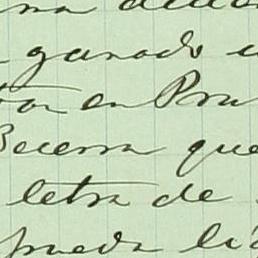 ganado
en Pru
Becerra que
letra de
pueda li